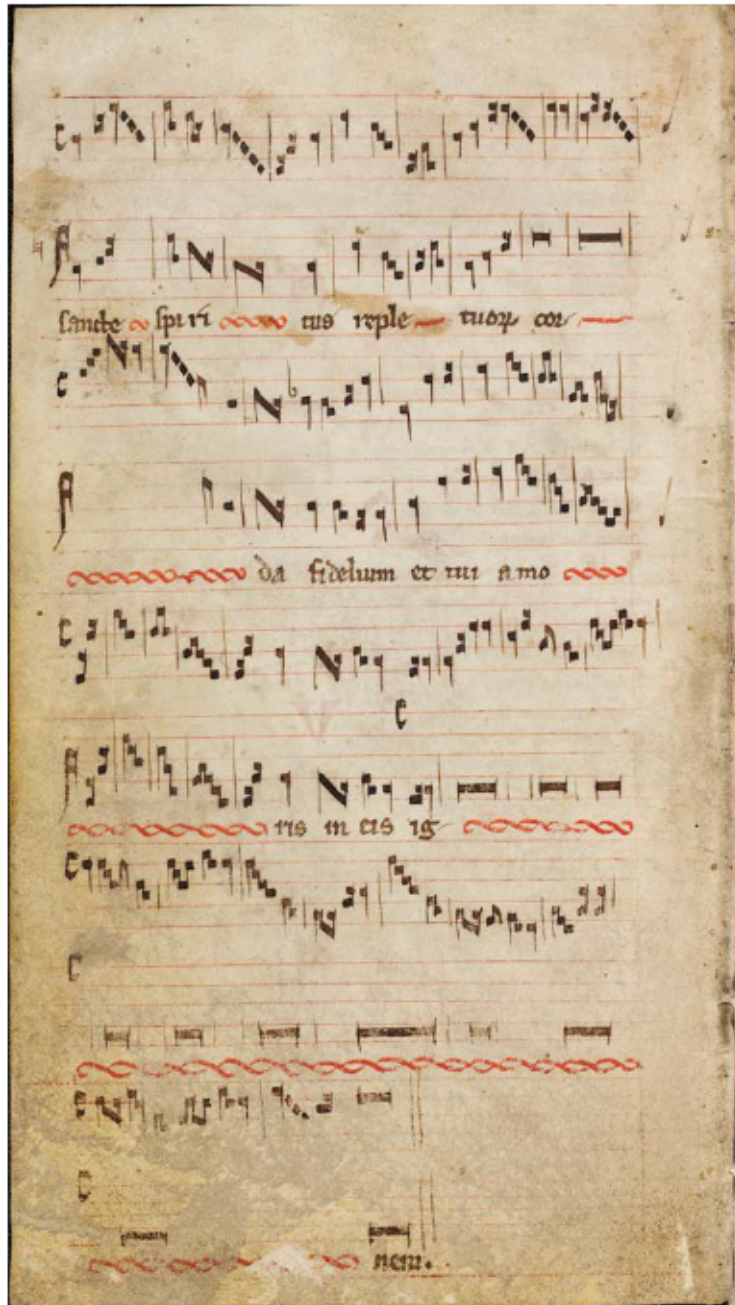 sancte spiri tus reple tuoꝝ cor
da fidelium et tui amo
ris in eis ig
nem.